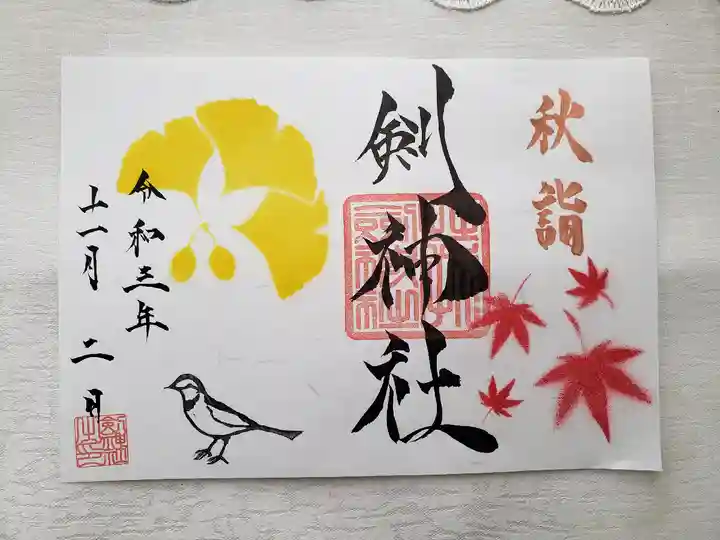 秋詣
剣神社
令和三年
十一月二日